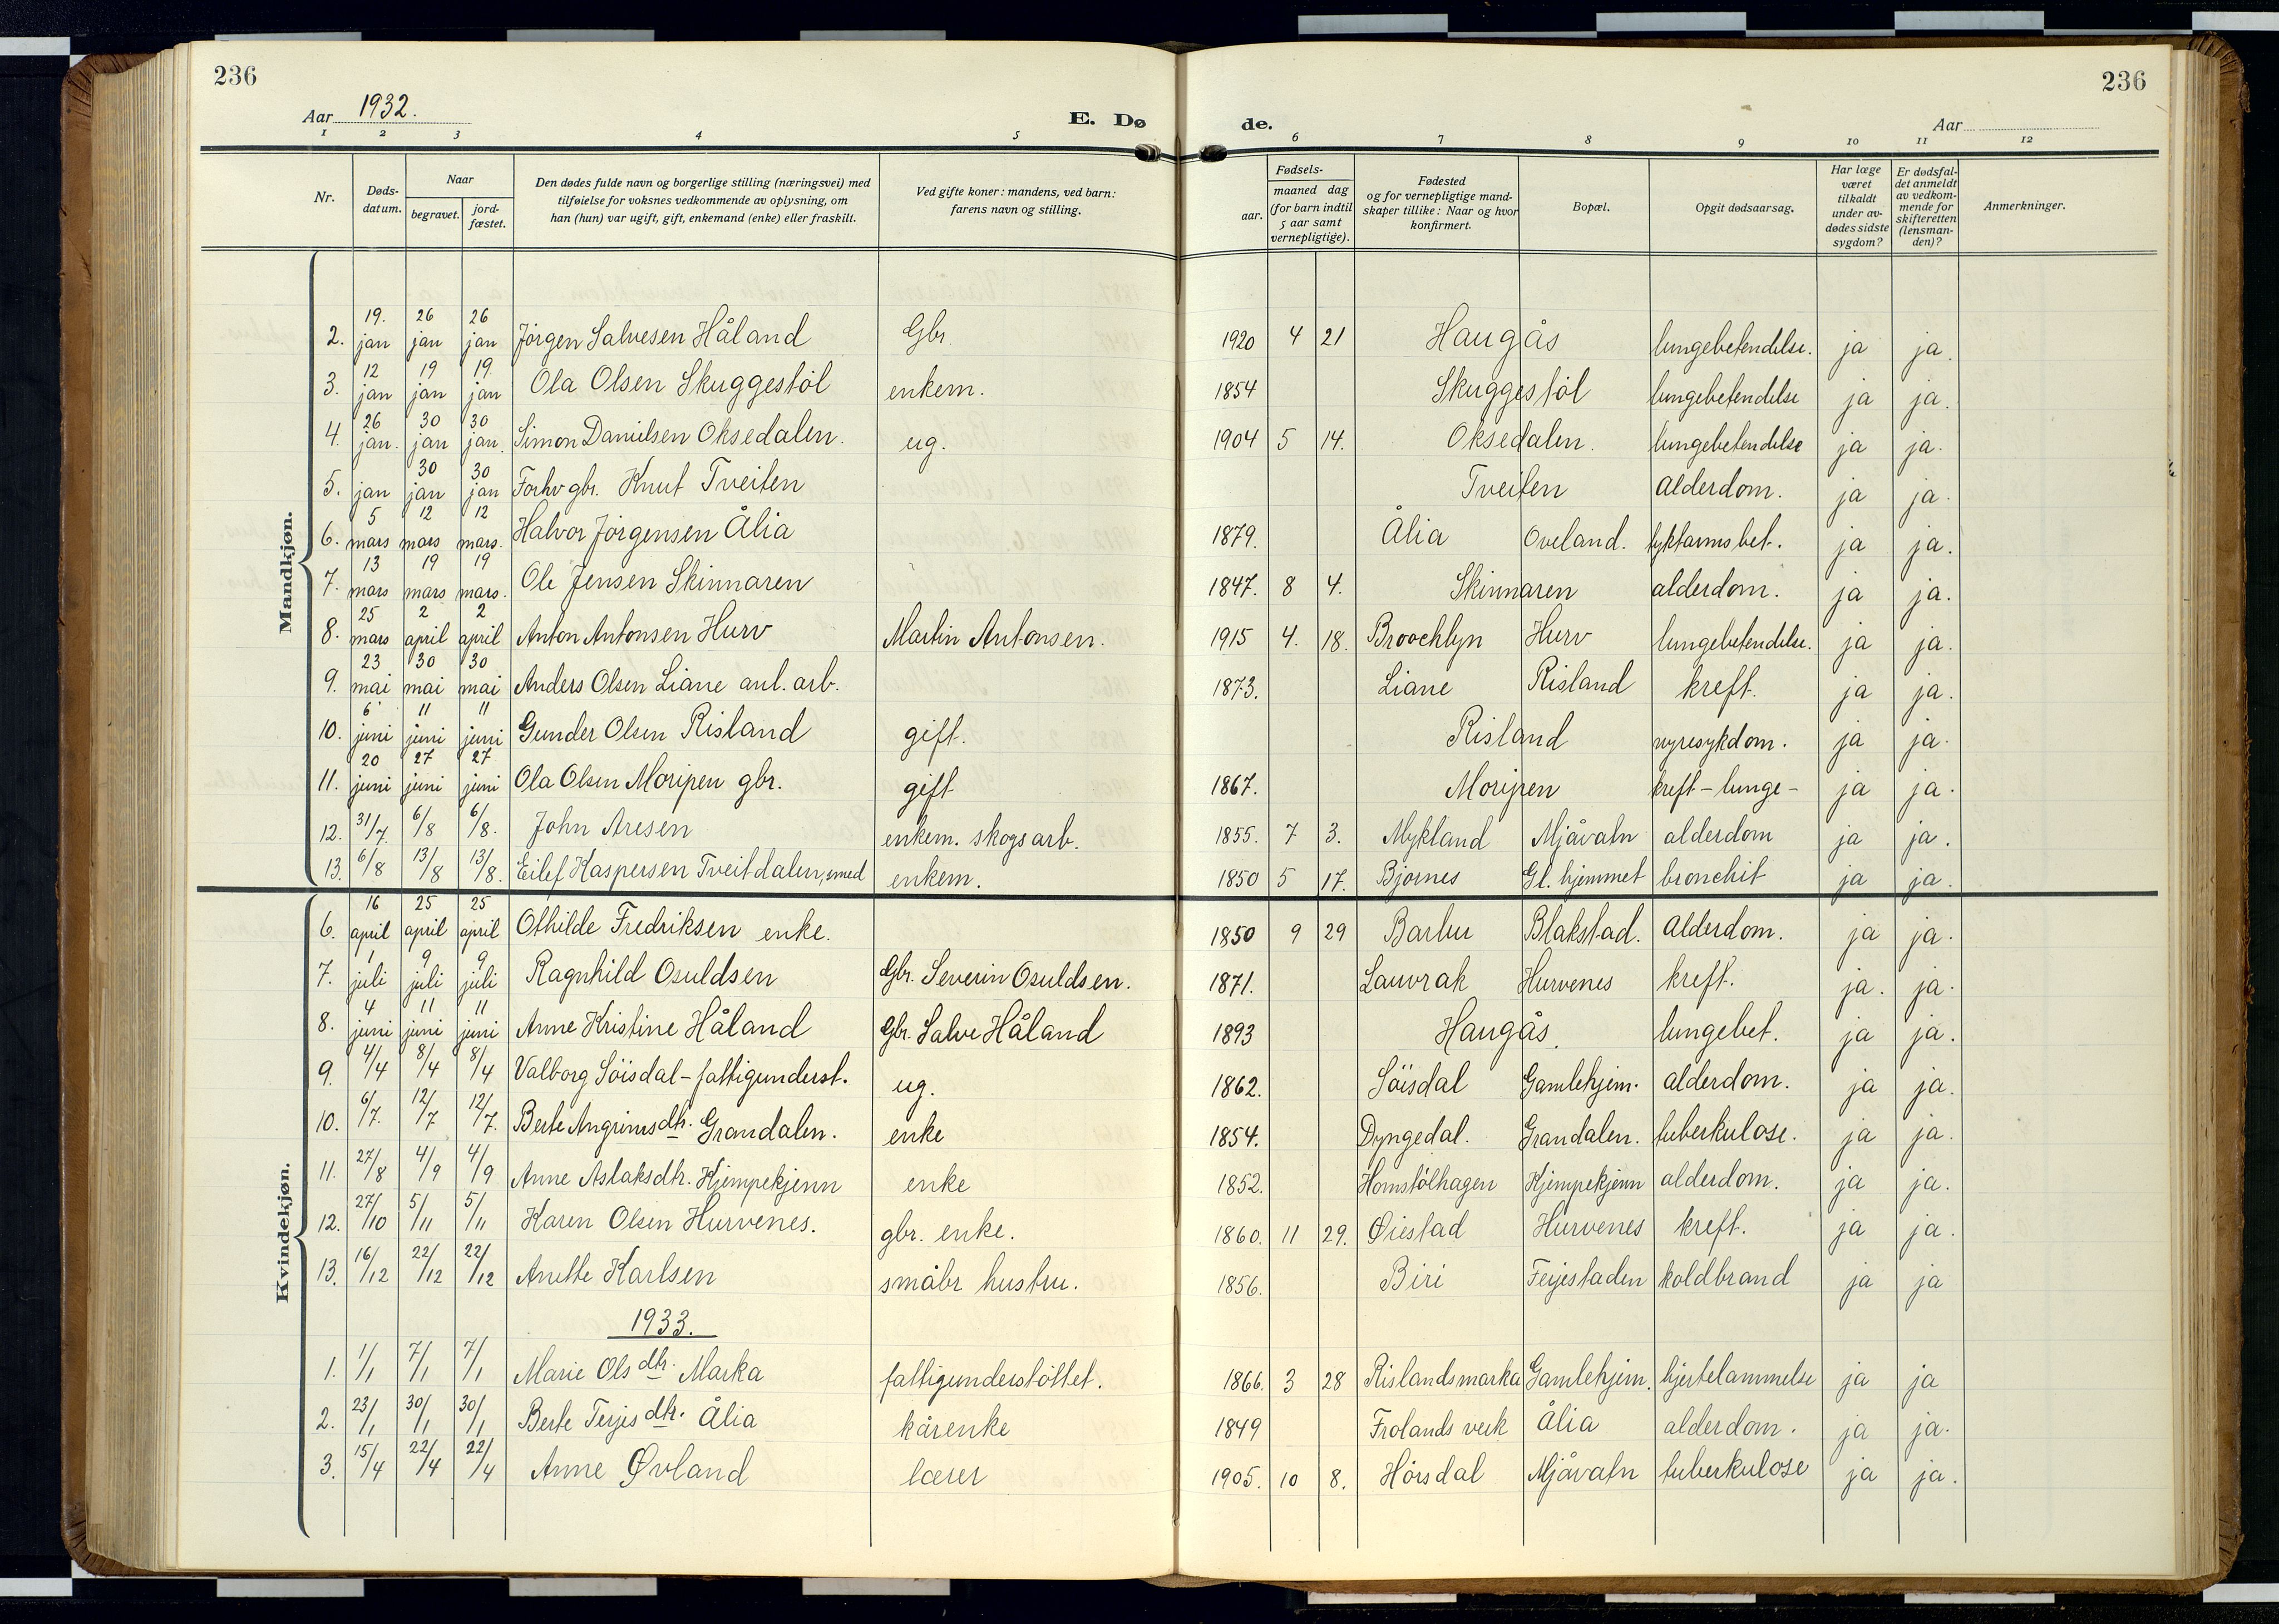 236
236
Aar 1932.
E. Dø
de.
Aar
1 2 3 4 5 6 7 8 9 10 11 12
Nr.
Døds-datum.
Naar
begravet.
jord-fæstet.
Den dødes fulde navn og borgerlige stilling (næringsvei) med
tilføielse for voksnes vedkommende av oplysning, om
han (hun) var ugift, gift, enkemand (enke) eller fraskilt.
Ved gifte koner: mandens, ved barn:
farens navn og stilling.
aar.
Fødsels-
maaned dag
(for barn indtil
5 aar samt
vernepligtige).
Fødested
og for vernepligtige mand-
skaper tillike: Naar og hvor
konfirmert.
Bopæl.
Opgit dødsaarsag.
Har læge
været
tilkaldt
under av-
dødes sidste
sygdom?
Er dødsfal-
det anmeldt
av vedkom-
mende for
skifteretten
(lensman-
den)?
Anmerkninger.
Mandkjøn.
2. 19. jan 26 jan 26 jan Jörgen Salvesen Håland Gbr. 1920 4 21 Haugås lungebetendelse. ja ja.
3. 12 jan 19 jan 19. jan Ola Olsen Skuggestöl enkem. 1854 Skuggestöl lungebetendelse ja ja.
4. 26 jan. 30 jan 30 jan. Simon Danielsen Oksedalen. ug. 1904 5 14. Oksedalen. lungebetendelse ja ja.
5. jan 30 jan 30 jan Forhv gbr. Knut Tveiten Tveiten Alderdom. ja ja.
6. 5 mars 12 mars 12 mars. Halvor Jörgensen Ålia 1879. Ålia Oveland. tyktarmsbet. ja ja.
7. 13 mars 19 mars 19 mars. Ole Jensen Skinnaren 1847. 8 4. Skinnaren alderdom. ja ja.
8. 25 mars 2 april 2 april Anton Antonsen Hurv Martin Antonsen. 1915 4. 18. Broochlyn Hurv lungebetendelse. ja ja.
9. 23 mai 30 mai 30 mai Anders Olsen Liane anl. arb. 1873. Liane Risland kreft. ja ja.
10. 6 juni 11 juni 11 juni Gunder Olsen Risland gift. Risland nyresykdom. ja ja.
11. 20 juni 27 juni 27 juni Ola Olsen Moripen gbr. gift 1867. Moripen kreft - lunge - ja ja.
12. 31/7. 6/8 6/8. John Aresen enkem. skogsarb. 1855. 7 3. Mykland Mjåvatn alderdom ja ja.
13. 6/8 13/8 13/8. Eilef Kaspersen Tveitdalen, smed enkem. 1850 5 17. Bjornes Gl. hjemmet bronchit ja ja.
Kvindekjøn.
6. 16 april 25 april 25 april Othilde Fredriksen enke. 1850 9 29 Barbu Blakstad. Alderdom. ja ja.
7. 1 juli 9 juli 9 juli Ragnhild Osuldsen Gbr. Severin Osuldsen. 1871. Lauvrak Hurvenes kreft. ja. ja.
8. 4 juni 11 juni 11 juni Anne Kristine Håland Gbr. Salve Håland 1893 Haugås. lungebet. ja ja.
9. 4/4 8/4 8/4 Valborg Söisdal - fattigunderst. ug. 1862. Söisdal Gamlehjem. alderdom. ja ja.
10. 6/7. 12/7 12/7. Berte Angrimsdtr. Grandalen. enke 1854. Dyngedal. Grandalen. tuberkulose. ja ja.
11. 27/8 4/9 4/9 Anne Aslaksdtr. Kjempekjenn enke 1852. Homstölhagen Kjempekjenn alderdom. ja ja.
12. 27/10 5/11 5/11 Karen Olsen Hurvenes. gbr. enke. 1860. 11 29. Øiestad Hurvenes kreft. ja ja.
13. 16/12 22/12 22/12 Anette Karlsen småbr hustru. 1856. Biri Ferjestaden koldbrand ja ja
1933.
1. 1/1 7/1 7/1 Marie Olsdtr. Marka fattigunderstöttet. 1866. 3 28 Rislandsmarka Gamlehjem. hjertelammelse ja ja
2. 23/1 30/1 30/1 Berte Terjesdtr. Ålia kårenke 1849 Frolands verk Ålia alderdom. ja ja.
3. 15/4 22/4 22/4 Anne Øvland lærer 1905. 10 8. Hörsdal Mjåvatn tuberkulose ja ja.